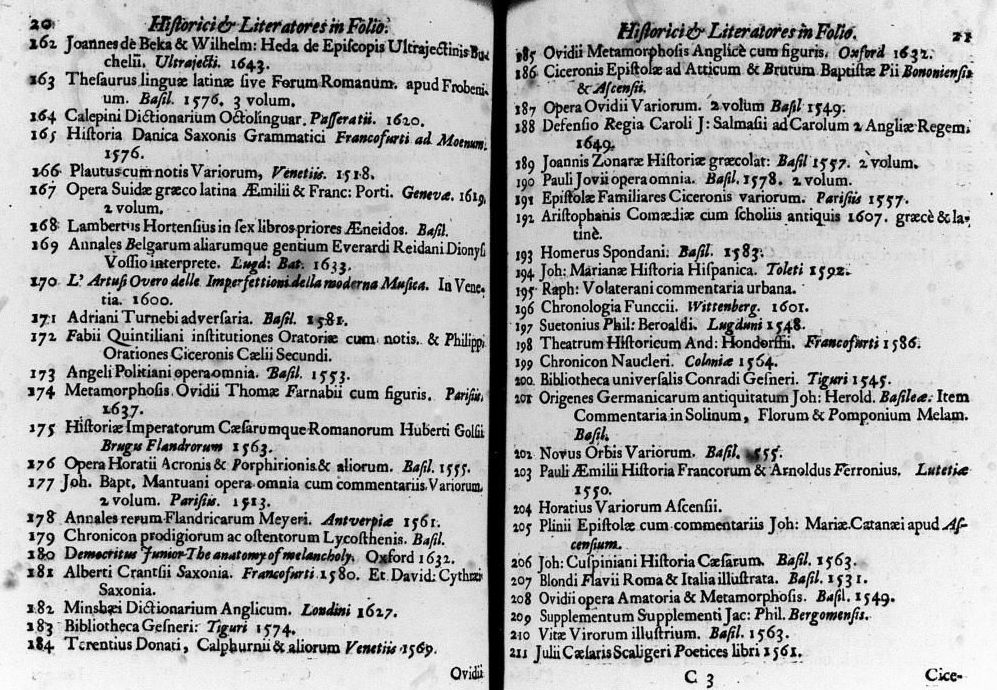 20 Historici & Literatores in Folio.
162 Joannes de Beka & Wilhelm: Heda de Episcopis Ultrajectinis Bu-
chelii. Ultrajecti. 1643.
163 Thesaurus linguæ latinæ sive Forum Romanum. apud Frobeni-
um. Basil. 1576. 3 volum.
164 Calepini Dictionarium Octolinguar. Passeratii. 1620.
165 Historia Danica Saxonis Grammatici Francofurti ad Moenum.
1576.
166 Plautus cum notis Variorum, Venetiis. 1518.
167 Opera Suidæ græco latina Æmilii & Franc: Porti. Genevæ. 1619.
2 volum.
168 Lambertus Hortensius in sex libros priores Æneidos. Basil.
169 Annales Belgarum aliarumque gentium Everardi Reidani Dionysi
Vossio interprete. Lugd: Bat. 1633.
170 L' Artusi Overo delle Imperfettioni della moderna Musica. In Vene-
tia. 1600.
171 Adriani Turnebi adversaria. Basil. 1581.
172 Fabii Quintiliani institutiones Oratoriæ cum notis. & Philippi
Orationes Ciceronis Cælii Secundi.
173 Angeli Politiani opera omnia. Basil. 1553.
174 Metamorphosis Ovidii Thomæ Farnabii cum figuris. Parisiis.
1637.
175 Historiæ Imperatorum Cæsarumque Romanorum Huberti Golsii
Brugis Flandrorum 1563.
176 Opera Horatii Acronis & Porphirionis & aliorum. Basil. 1555.
177 Joh. Bapt. Mantuani opera omnia cum commentariis Variorum.
2 volum. Parisiis. 1513.
178 Annales rerum Flandricarum Meyeri. Antverpiæ 1561.
179 Chronicon prodigiorum ac ostentorum Lycosthenis. Basil.
180 Democritus Junior The anatomy of melancholy. Oxford 1632.
181 Alberti Crantsii Saxonia. Francofurti 1580. Et David: Cythræi
Saxonia.
182 Minshæi Dictionarium Anglicum. Londini 1627.
183 Bibliotheca Gesneri: Tiguri 1574.
184 Terentius Donati, Calphurnii & aliorum Venetiis 1569.
Ovidii
Historici & Literatores in Folio. 21
185 Ovidii Metamorphosis Anglicè cum figuris. Oxford 1632.
186 Ciceronis Epistolæ ad Atticum & Brutum Baptistæ Pii Bononiensis
& Ascensii.
187 Opera Ovidii Variorum. 2 volum Basil 1549.
188 Defensio Regia Caroli J: Salmasii ad Carolum 2 Angliæ Regem.
1649.
189 Joannis Zonaræ Historiæ græcolat: Basil 1557. 2 volum.
190 Pauli Jovii opera omnia. Basil. 1578. 2 volum.
191 Epistolæ Familiares Ciceronis variorum. Parisiis 1557.
192 Aristophanis Comædiæ cum scholiis antiquis 1607. græcè & la-
tinè.
193 Homerus Spondani: Basil. 1583.
194 Joh: Marianæ Historia Hispanica. Toleti 1592.
195 Raph: Volaterani commentaria urbana.
196 Chronologia Funccii. Wittenberg. 1601.
197 Suetonius Phil: Beroaldi. Lugduni 1548.
198 Theatrum Historicum And: Hondorffii. Francofurti 1586.
199 Chronicon Naucleri. Coloniæ 1564.
200 Bibliotheca universalis Conradi Gesneri. Tiguri 1545.
201 Origenes Germanicarum antiquitatum Joh: Herold. Basileæ. Item
Commentaria in Solinum, Florum & Pomponium Melam.
Basil.
202 Novus Orbis Variorum. Basil. 1555.
203 Pauli Æmilii Historia Francorum & Arnoldus Ferronius. Lutetiæ
1550.
204 Horatius Variorum Ascensii.
205 Plinii Epistolæ cum commentariis Joh: Mariæ Catanæi apud As-
censium.
206 Joh: Cuspiniani Historia Cæsarum. Basil. 1563.
207 Blondi Flavii Roma & Italia illustrata. Basil. 1531.
208 Ovidii opera Amatoria & Metamorphosis. Basil. 1549.
209 Supplementum Supplementi Jac: Phil. Bergomensis.
210 Vitæ Virorum illustrium. Basil. 1563.
211 Julii Cæsaris Scaligeri Poetices libri 1561.
C 3 Cice-